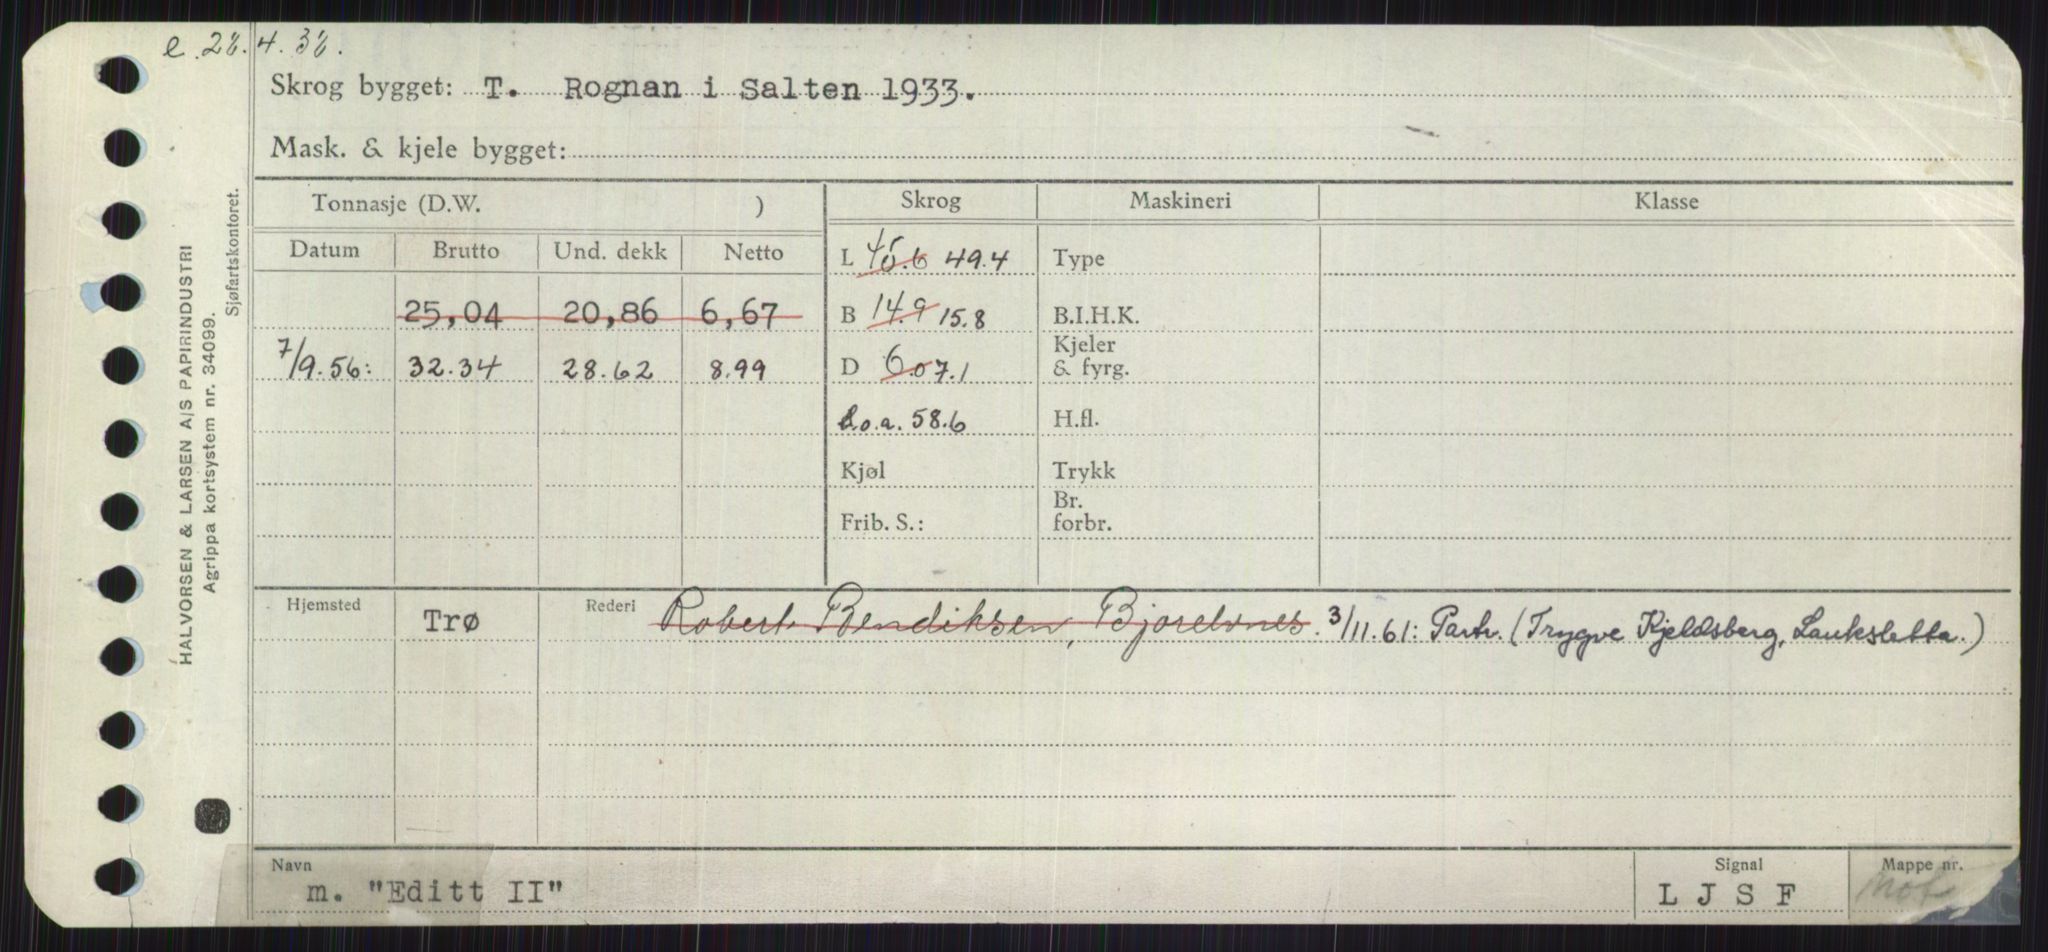 e. 28.4.38.
Skrog bygget: T. Rognan i Salten 1933.
Mask. & kjele bygget:
Tonnasje (D.W. ) Skrog Maskineri Klasse
Datum Brutto Und. dekk Netto L 45.6 49.4 Type
25,04 20,86 6,67 B 14.9 15.8 B.I.H.K.
7/9.56: 32.34 28.62 8.99 D 6.0 7.1 Kjeler & fyrg.
L.o.a. 58.6 H.fl.
Kjøl Trykk
Frib. S.: Br. forbr.
Hjemsted Trø Rederi Robert Bendiksen, Bjorelvnes. 3/11.61: Partr. (Trygve Kjeldsberg, Lauksletta.)
Navn Signal Mappe nr.
m. "Editt II" L J S F mot
HALVORSEN & LARSEN A/S PAPIRINDUSTRI
Agrippa kortsystem nr. 34099.
Sjøfartskontoret.